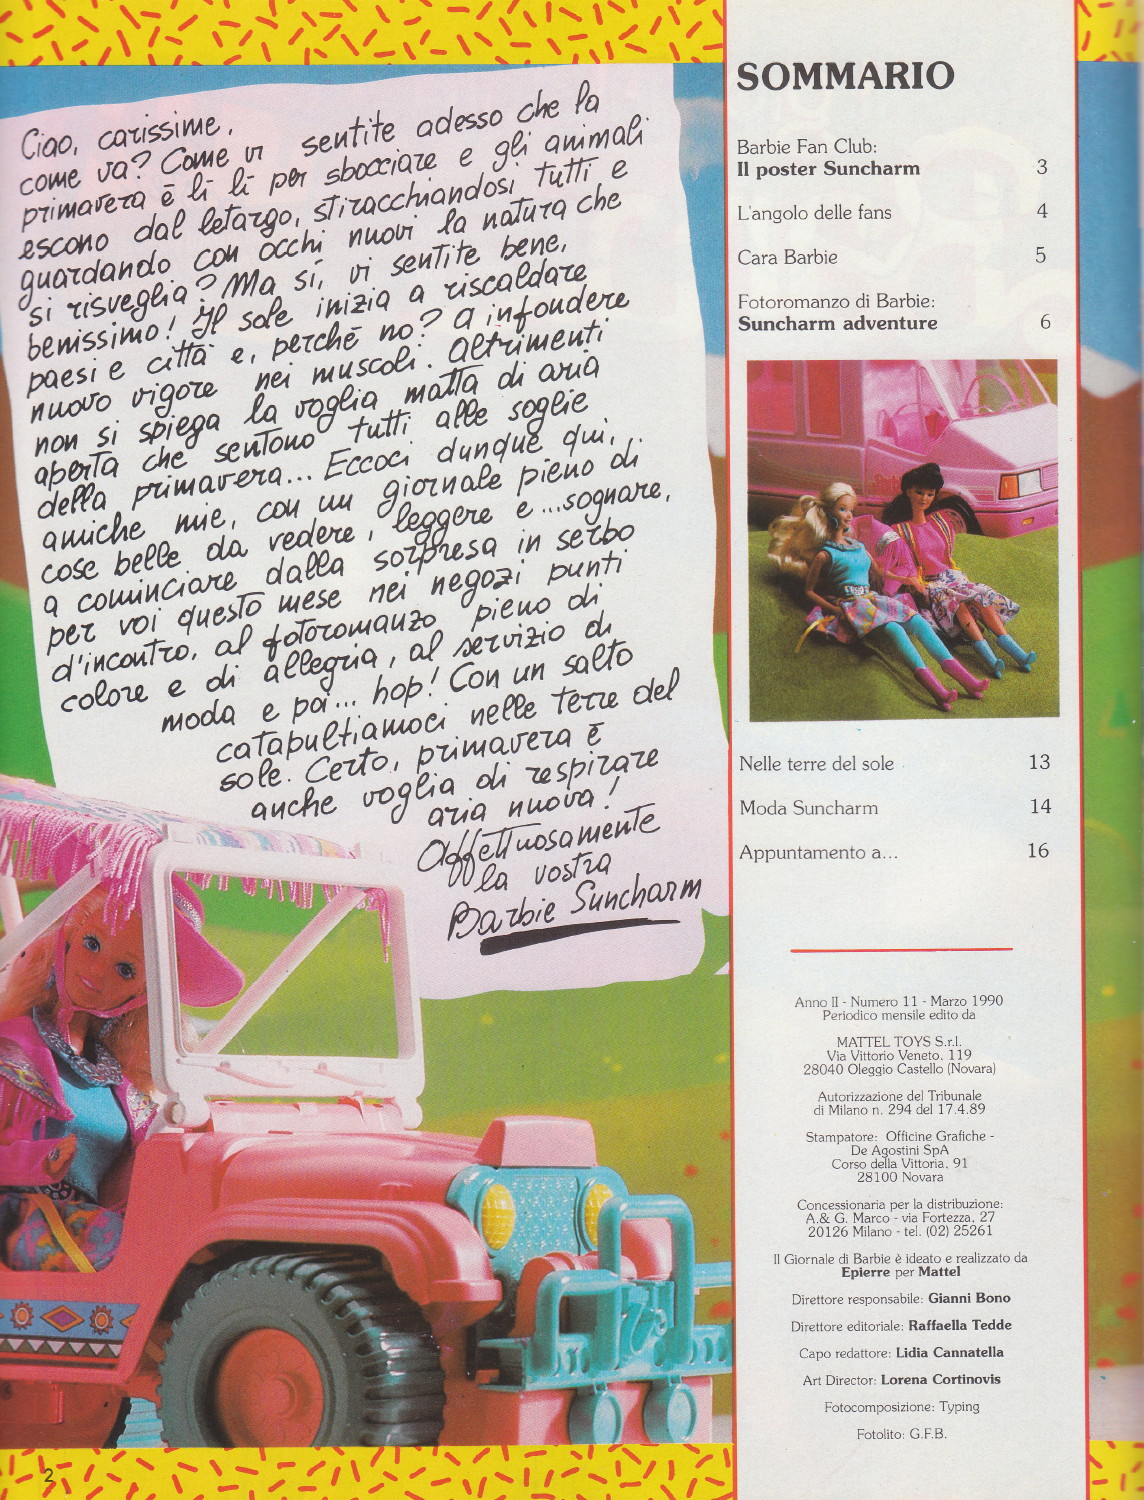 Ciao, carissime,
come va? Come vi sentite adesso che la
primavera è lì lì per sbocciare e gli animali
escono dal letargo, stiracchiandosi tutti e
guardando con occhi nuovi la natura che
si risveglia? Ma sì, vi sentite bene,
benissimo! Il sole inizia a riscaldare
paesi e città e, perché no? a infondere
nuovo vigore nei muscoli. Altrimenti
non si spiega la voglia matta di aria
aperta che sentono tutti alle soglie
della primavera... Eccoci dunque qui,
amiche mie, con un giornale pieno di
cose belle da vedere, leggere e...sognare,
a cominciare dalla sorpresa in serbo
per voi questo mese nei negozi punti
d'incontro, al fotoromanzo pieno di
colore e di allegria, al servizio di
moda e poi... hop! Con un salto
catapultiamoci nelle terre del
sole. Certo, primavera è
anche voglia di respirare
aria nuova!
Affettuosamente
la vostra
Barbie Suncharm
2
SOMMARIO
Barbie Fan Club:
Il poster Suncharm 3
L'angolo delle fans 4
Cara Barbie 5
Fotoromanzo di Barbie:
Suncharm adventure 6
Nelle terre del sole 13
Moda Suncharm 14
Appuntamento a... 16
Anno II - Numero 11 - Marzo 1990
Periodico mensile edito da
MATTEL TOYS S.r.l.
Via Vittorio Veneto, 119
28040 Oleggio Castello (Novara)
Autorizzazione del Tribunale
di Milano n. 294 del 17.4.89
Stampatore: Officine Grafiche -
De Agostini SpA
Corso della Vittoria, 91
28100 Novara
Concessionaria per la distribuzione:
A.& G. Marco - via Fortezza, 27
20126 Milano - tel. (02) 25261
Il Giornale di Barbie è ideato e realizzato da
Epierre per Mattel
Direttore responsabile: Gianni Bono
Direttore editoriale: Raffaella Tedde
Capo redattore: Lidia Cannatella
Art Director: Lorena Cortinovis
Fotocomposizione: Typing
Fotolito: G.F.B.